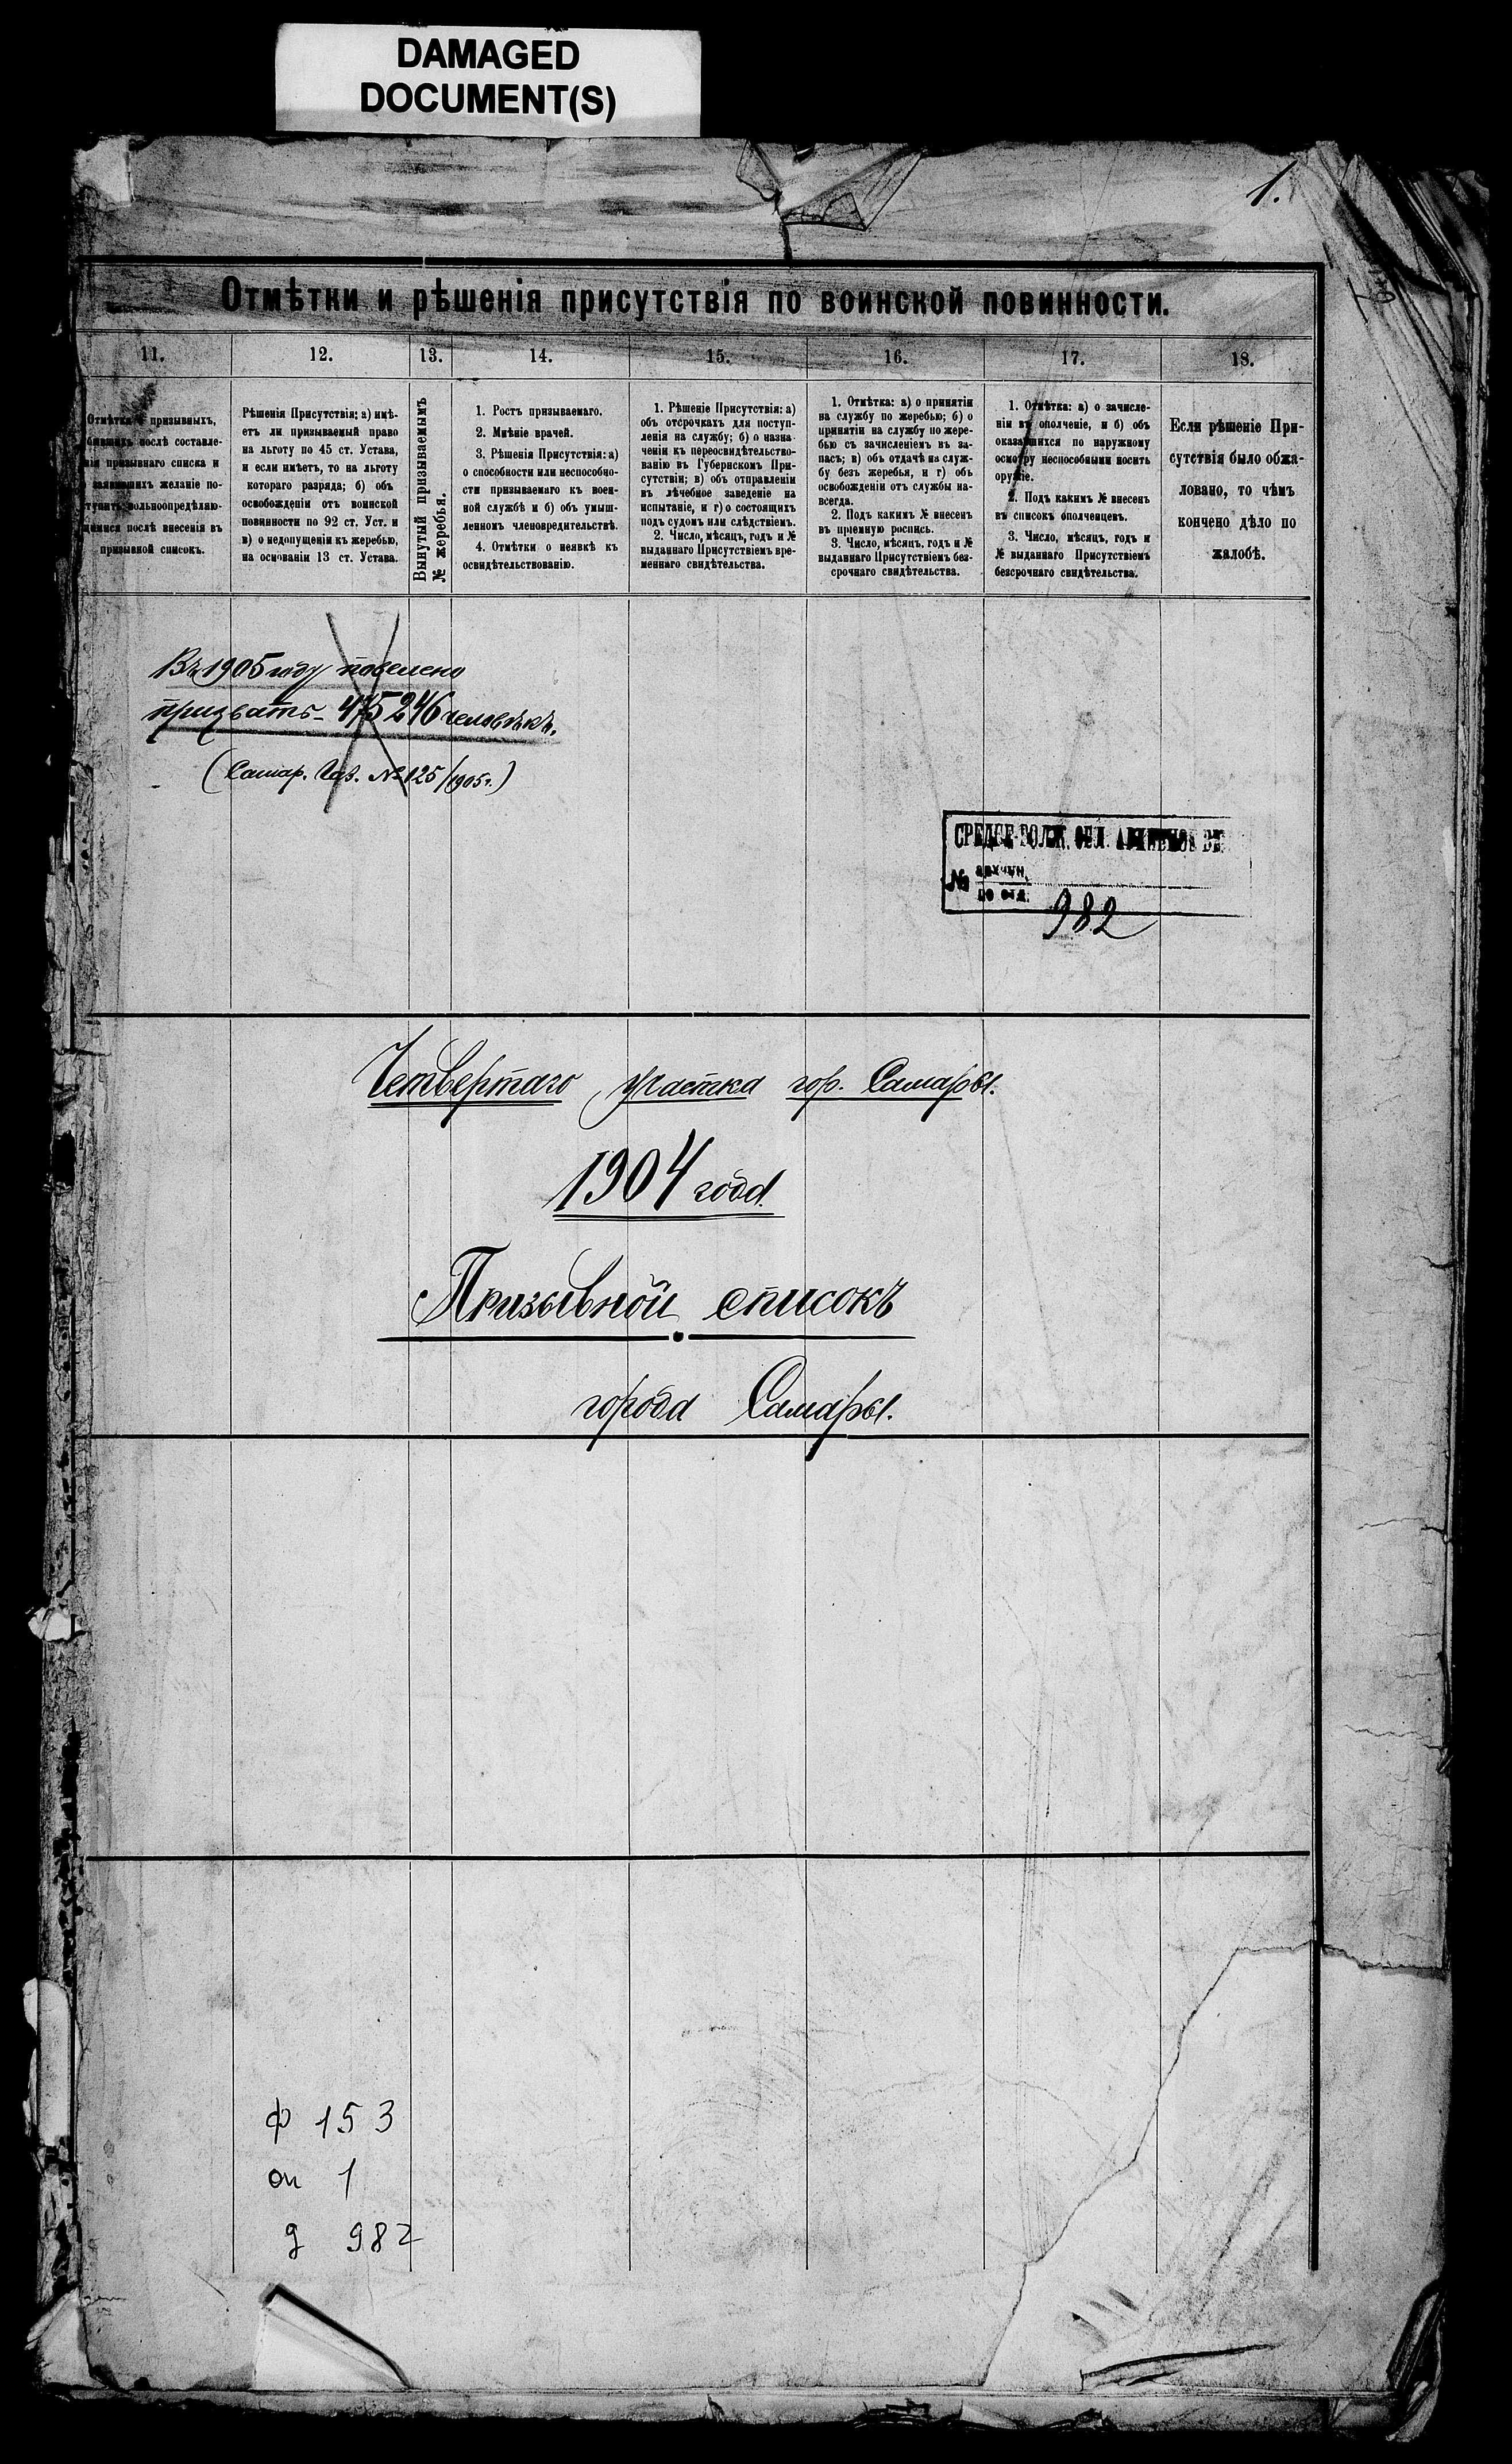 DAMAGED
DOCUMENT(S)
1.
Отмѣтки и рѣшенія присутствія по воинской повинности.
11.
12.
13.
14.
15.
16.
17.
18.
призывныхъ,
послѣ составле-
призывнаго списка и
желаніе по-
вольноопредѣляю-
послѣ внесенія въ
призывной списокъ.
Рѣшенія Присутствія: а) имѣ-
етъ ли призываемый право
на льготу по 45 ст. Устава,
и если имѣетъ, то на льготу
котораго разряда; б) объ
освобожденіи отъ воинской
повинности по 92 ст. Уст. и
в) о недопущеніи къ жеребью,
на основаніи 13 ст. Устава.
Вынутый призываемымъ
№ жеребья.
1. Ростъ призываемаго.
2. Мнѣніе врачей.
3. Рѣшенія Присутствія: а)
о способности или неспособно-
сти призываемаго къ воен-
ной службѣ и б) объ умыш-
ленномъ членовредительствѣ.
4. Отмѣтки о неявкѣ къ
освидѣтельствованію.
1. Рѣшеніе Присутствія: а)
объ отсрочкахъ для поступ-
ленія на службу; б) о назна-
ченіи къ переосвидѣтельство-
ванію въ Губернскомъ При-
сутствіи; в) объ отправленіи
въ лѣчебное заведеніе на
испытаніе, и г) о состоящихъ
подъ судомъ или слѣдствіемъ.
2. Число, мѣсяцъ, годъ и №
выданнаго Присутствіемъ вре-
меннаго свидѣтельства.
1. Отмѣтка: а) о принятіи
на службу по жеребью; б) о
принятіи на службу по жере-
бью съ зачисленіемъ въ за-
пасъ; в) объ отдачѣ на служ-
бу безъ жеребья, и г) объ
освобожденіи отъ службы на-
всегда.
2. Подъ какимъ № внесенъ
въ пріемную роспись.
3. Число, мѣсяцъ, годъ и №
выданнаго Присутствіемъ без-
срочнаго свидѣтельства.
1. Отмѣтка: а) о зачисле-
ніи въ ополченіе, и б) объ
оказавшихся по наружному
осмотру неспособными носить
оружіе.
2. Подъ какимъ № внесенъ
въ списокъ ополченцевъ.
3. Число, мѣсяцъ, годъ и
№ выданнаго Присутствіемъ
безсрочнаго свидѣтельства.
Если рѣшеніе При-
сутствія было обжа-
ловано, то чѣмъ
кончено дѣло по
жалобѣ.
Въ 1905 году повелено
призвать - 475246 человѣкъ.
(Самар. Газ. № 125/1905г.)
СРЕДНЕ-ВОЛЖ. ОБЛ.
№
по отд.
982
Четвертаго участка гор. Самары.
1904 года.
Призывной списокъ
города Самары.
ф 153
оп 1
д 982